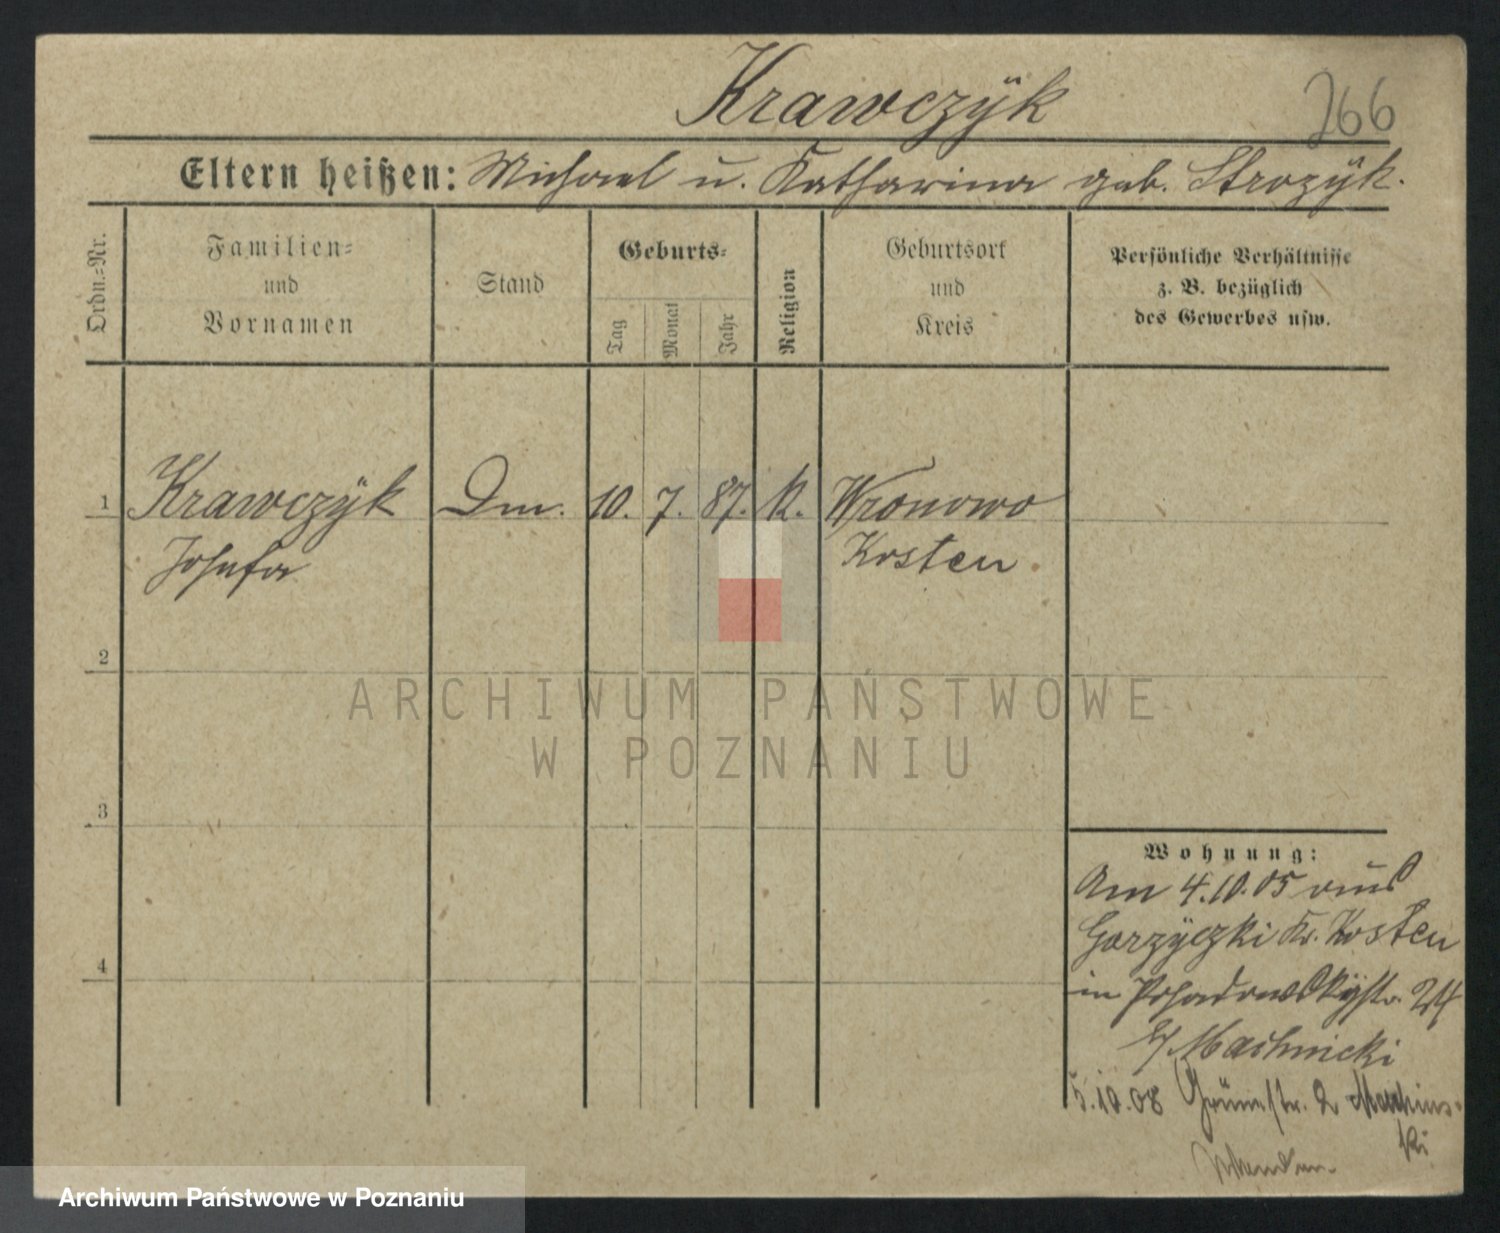 Krawczÿk
266
Eltern heißen: Michael u. Katharina geb. Strozÿk.
Ordn.-Nr.
Familien-
und
Vornamen
Stand
Geburts-
Tag
Monat
Jahr
Religion
Geburtsort
und
Kreis
Persönliche Verhältnisse
z. B. bezüglich
des Gewerbes usw.
1 Krawczÿk Dm. 10. 7. 87. k. Wronowo
Josefa Kosten
2
3
4
ARCHIWUM PAŃSTWOWE
W POZNANIU
Wohnung:
Am 4.10.05 aus
Gorzÿczki Kr. Kosten
in Posadowskÿstr. 24
b/ Machnicki
5.10.08 Grünestr. 2
Archiwum Państwowe w Poznaniu